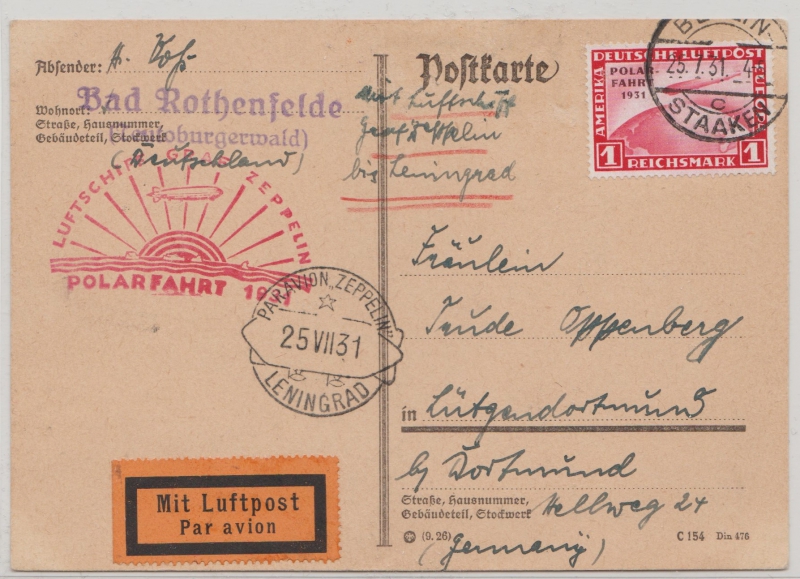 Absender: A. Voß
Wohnort:
Bad Rothenfelde
Straße, Hausnummer,
Gebäudeteil, Stockwerk
(Teutoburgerwald)
(Deutschland)
LUFTSCHIFF GRAF ZEPPELIN
POLARFAHRT 1931
PAR AVION „ZEPPELIN“
25 VII 31
LENINGRAD
Mit Luftpost
Par avion
Postkarte
mit Luftschiff
Graf Zeppelin
bis Leningrad
DEUTSCHE LUFTPOST
EUROPA
AMERIKA
POLAR-
FAHRT
1931
1 REICHSMARK 1
BERLIN
25.7.31.
C
STAAKEN
Fräulein
Trude Oppenberg
in Lütgendortmund
by Dortmund
Straße, Hausnummer,
Gebäudeteil, Stockwerk
Hellweg 24
(9. 26)
(Germany)
C 154 Din 476